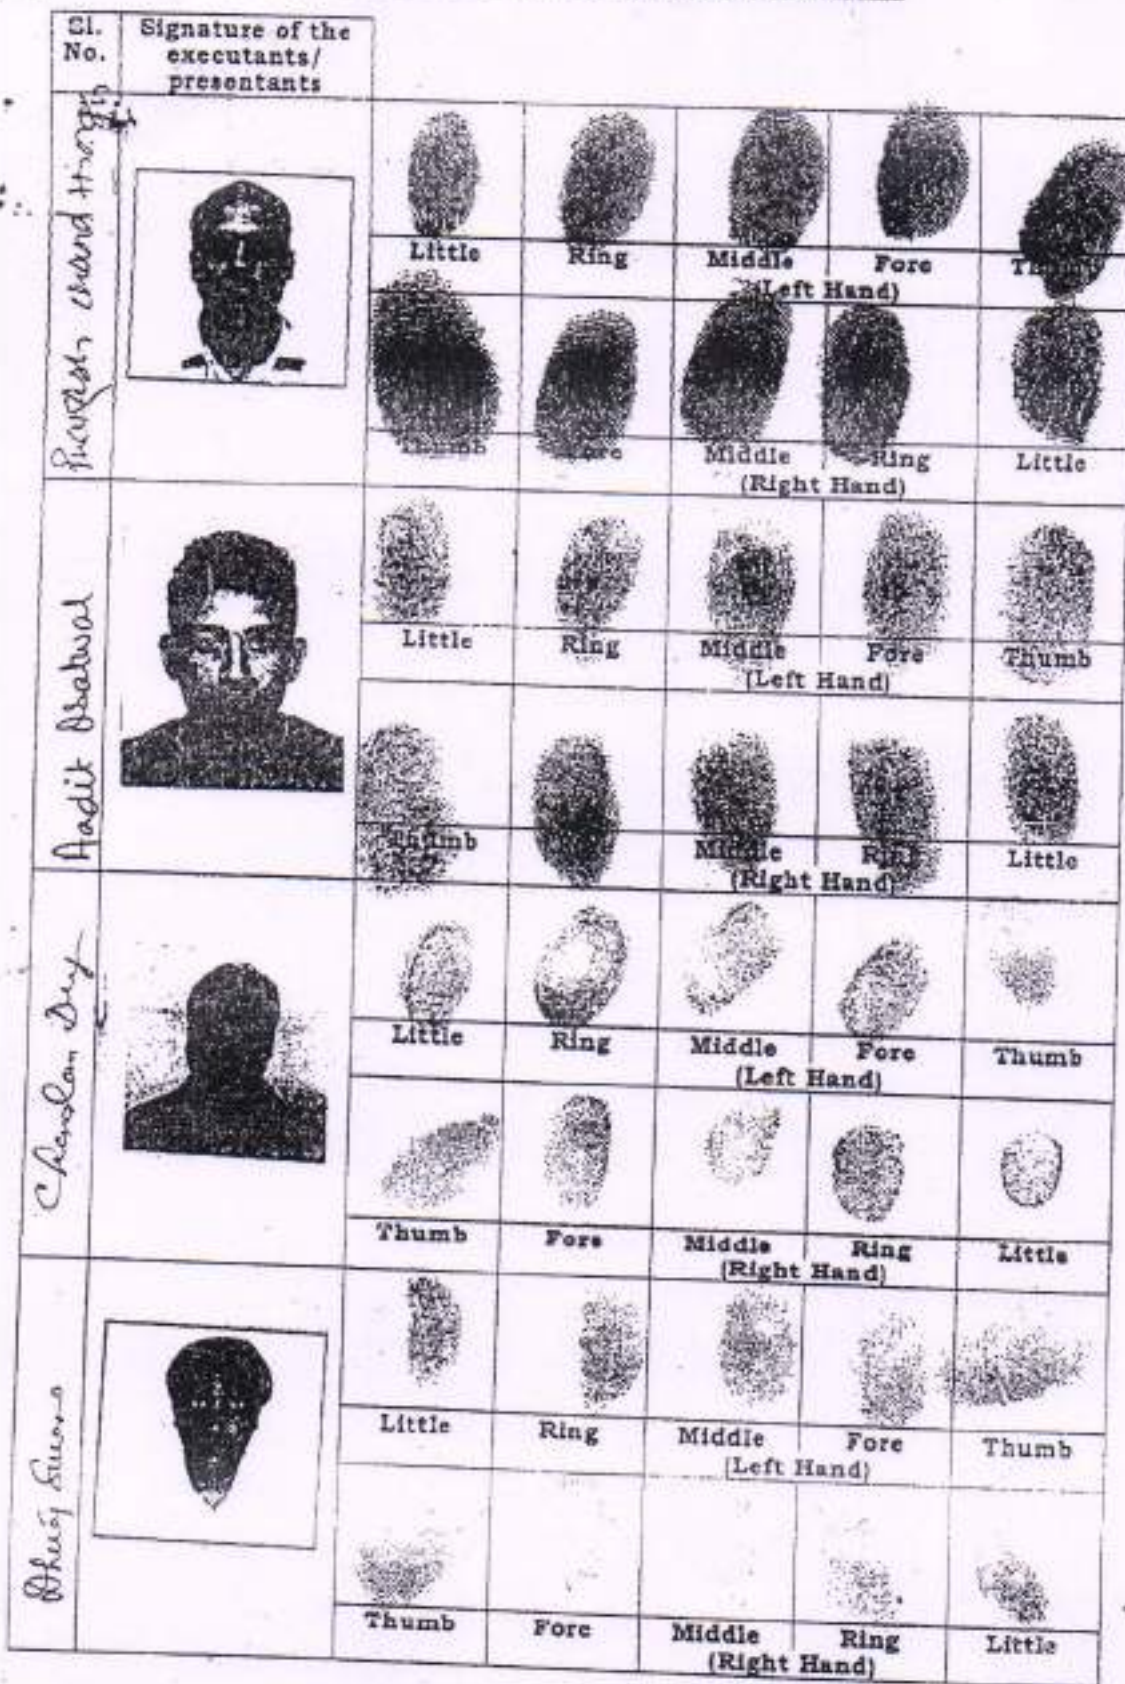 Sl. No.
Signature of the executants/ presentants
Little Ring Middle Fore Thumb
(Left Hand)
Thumb Fore Middle Ring Little
(Right Hand)
chand
Little Ring Middle Fore Thumb
(Left Hand)
Thumb Middle Ring Little
(Right Hand)
Aadit
Little Ring Middle Fore Thumb
(Left Hand)
Thumb Fore Middle Ring Little
(Right Hand)
Dey
Little Ring Middle Fore Thumb
(Left Hand)
Thumb Fore Middle Ring Little
(Right Hand)